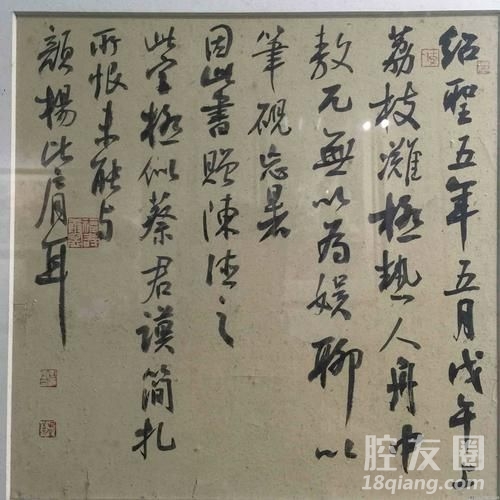 紹聖五年五月戊午上
荔枝灘極熱人舟中
敖兀無以為娱聊以
筆硯忘暑
因此書贈陳德之
此字極似蔡君謨簡札
所恨未能與
顏楊比肩耳
腔友圈
18qiang.com